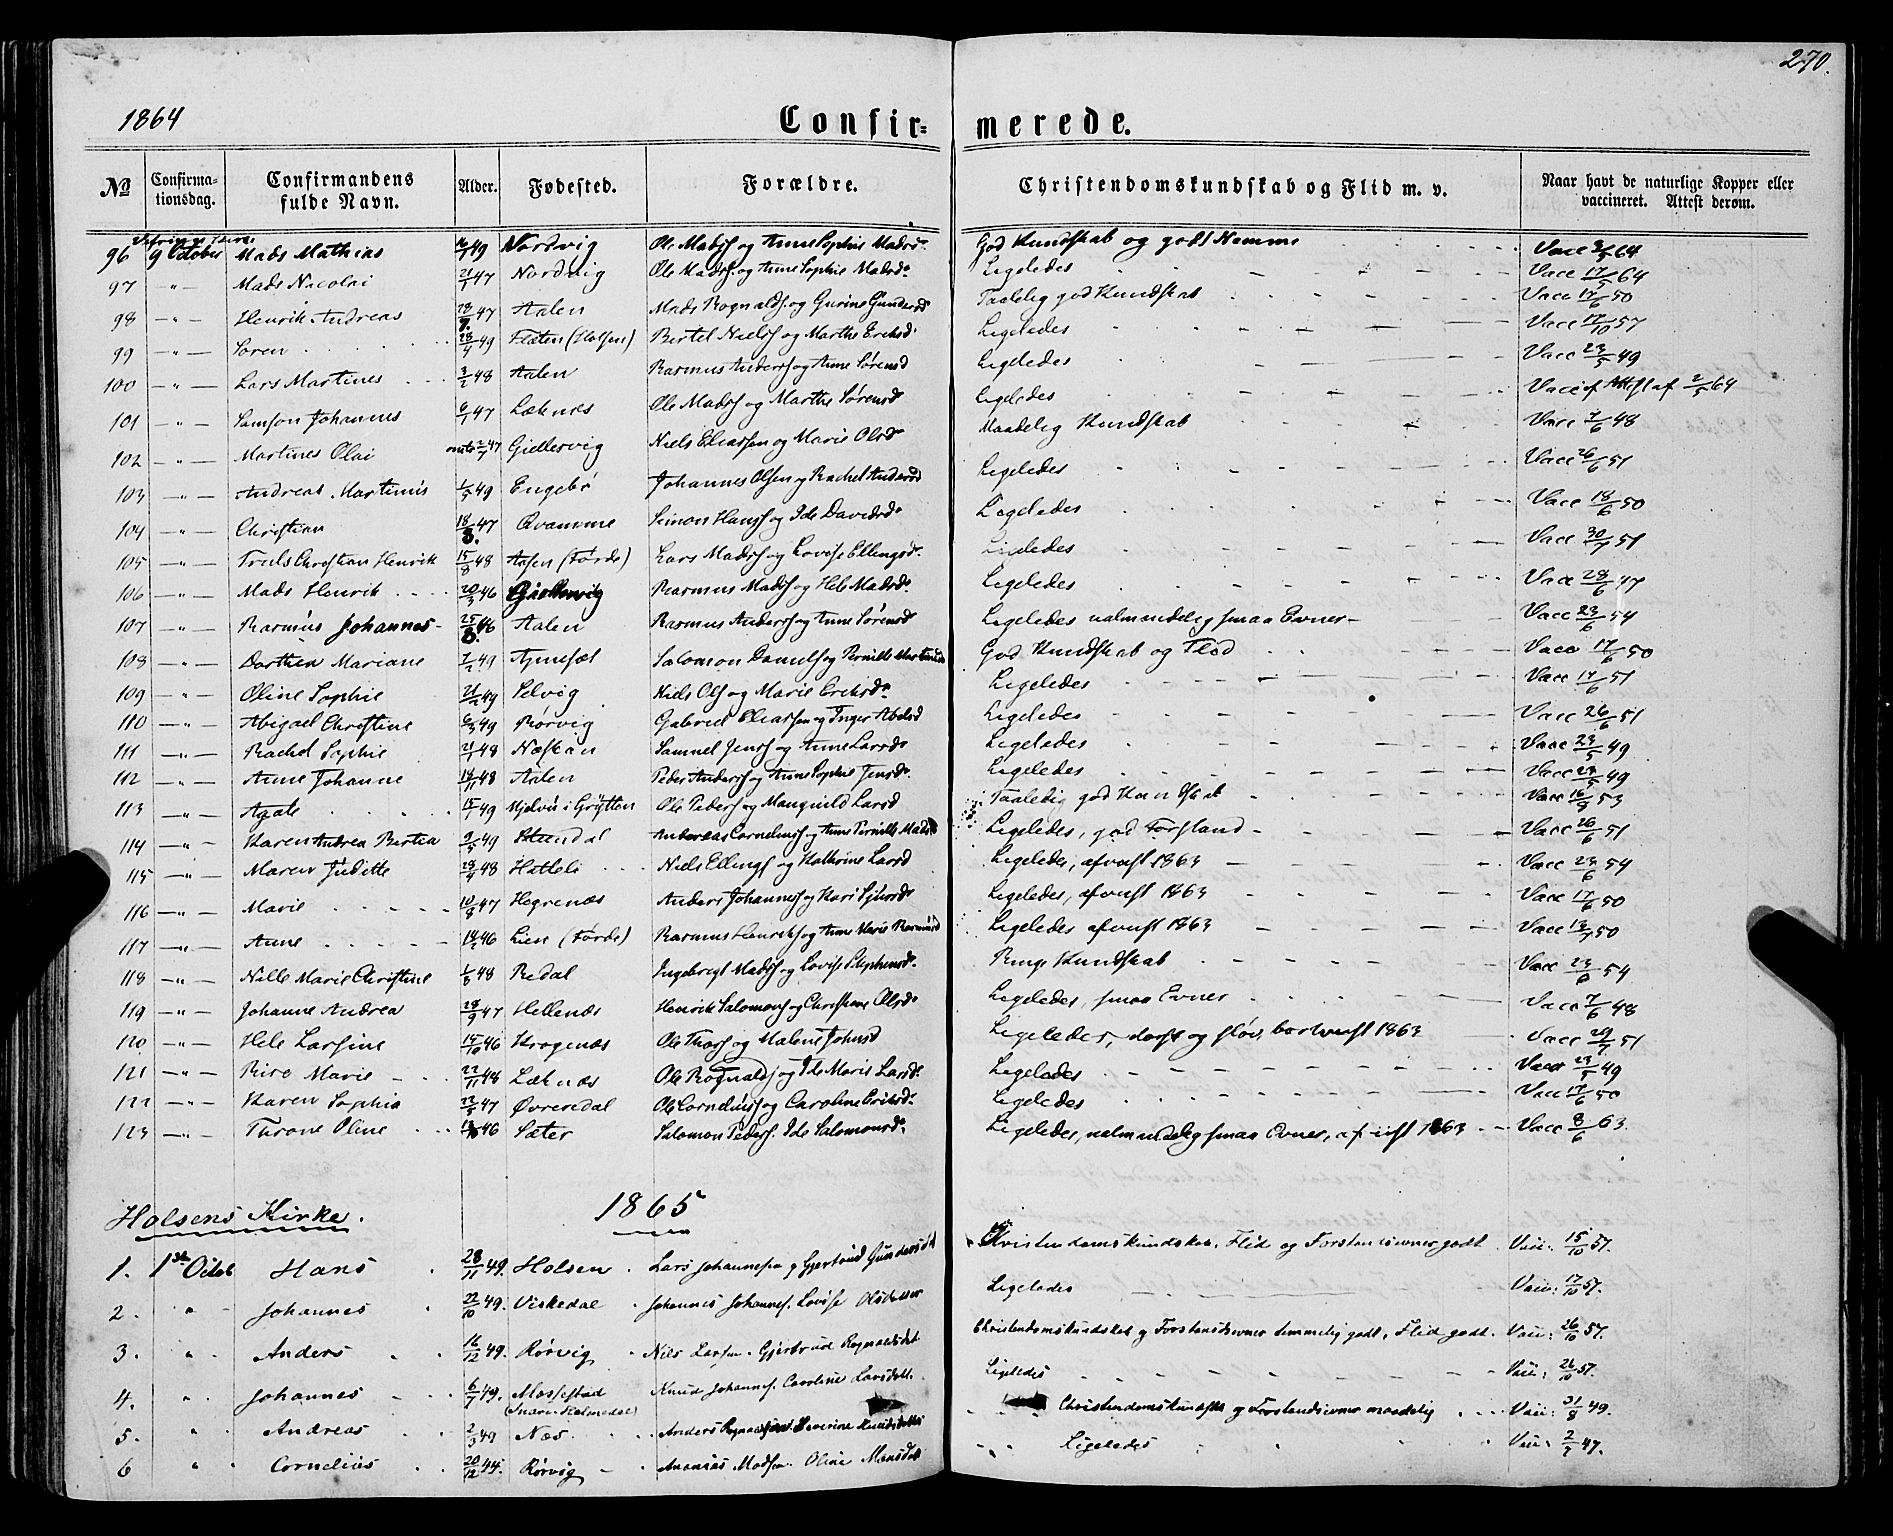 270.
1864
Confir= merede.
No Confirmationsdag. Confirmandens fulde Navn. Alder. Fødested. Forældre. Christendomskundskab og Flid m. v. Naar havt de naturlige Kopper eller vaccineret. Attest derom.
96 9 October Mads Mathias 49 Nordvig Ole Madss og Anne Sophie Madsd. God Kundskab og godt Nemme Vacc 64
97 —"— Mads Nicolai 21/1 47 Nordvig Ole Madss og Anne Sophie Madsd. Ligeledes Vacc 17/5 64
98 —"— Henrik Andreas 47 Aalen Mads Rognalds. og Gurine Gundersd Taalelig god Kundskab Vacc 17/6 50
99 —"— Søren 28/4 49 Flæten (Holsen) Bertel Nielss og Marthe Eriksd. Ligeledes Vacc 17/10 57
100 —"— Lars Martines 3/2 48 Aalen Rasmus Anderss og Anne Sørensd Ligeledes Vacc 23/5 49
101 —"— Samson Johannes 6/1 47 Løknes Ole Madss og Marthe Sørensd Ligeledes Vacc 64
102 —"— Martines Olai 47 Gjellesvig Niels Eliassen og Marie Olsd. Maadelig Kundskab Vacc 7/6 48
103 —"— Andreas Martinus 49 Engebø Johannes Olsen og Rachel Andersd Ligeledes Vacc 26/6 51
104 —"— Christian 18/8 47 Qvamme Simon Hanss og Ide Davidsd. Ligeledes Vacc 18/6 50
105 —"— Truls Christian Henrik 15/8 48 Aasen (Førde) Lars Madss og Lovise Ellingsd. Ligeledes Vacc 51
106 —"— Mads Henrik 20/3 46 Gjellesvig Rasmus Madss og Hele Madsd. Ligeledes Vacc 28/6 47
107 —"— Rasmus Johannes 25/8 46 Aalen Rasmus Anderss og Anne Sørensd Ligeledes ualmindelig smaa Evner Vacc 23/6 54
108 —"— Dorthea Mariane 7/2 49 Salomon Daniels og Pernille God Kundskab og Flid Vacc 17/6 50
109 —"— Oline Sophie 49 Selvig Niels Ols og Marie Eriksd. Ligeledes Vacc 17/6 51
110 —"— Abigael Christine 49 Rørvig Gabriel Eliassen og Inger Abelsd Ligeledes Vacc 26/6 51
111 —"— Rachel Sophie 21/1 48 Samuel Jenss og Anne Larsd. Ligeledes Vacc 23/5 49
112 —"— Anne Johanne 48 Aalen Peder Anderss og Anne Sophie Jensd. Ligeledes Vacc 23/5 49
113 —"— Agate 49 i Grytten Ole Peders og Larsd Taalelig god Kundskab Vacc 53
114 —"— Karen Andrea Bertea 49 Stundal Andreas Corneliuss og Anne Pernille Madsd Ligeledes, god Forstand Vacc 26/6 51
115 —"— Maren Juditte 28/4 48 Hatleli Niels Ellings og Kathrine Larsd Ligeledes, afviist 1863 Vacc 23/6 54
116 —"— Marie 10/8 47 Hegrenæs Anders Johanness og Kari Sjursd. Ligeledes, afviist 1863 Vacc 17/6 50
117 —"— Anne 46 Lien (Førde) Rasmus Henrikss og Anne Marie Rasmusd Ligeledes afviist 1863 Vacc 50
118 —"— Nille Marie Christine 48 Redal Ingebregt Madss og Lovise Stephensd. Ringe Kundskab Vacc 23/6 54
119 —"— Johanne Andrea 28/9 47 Hellenæs Henrik Salomons og Christiane Olsd. Ligeledes, smaa Evner Vacc 7/6 48
120 —"— Hele Larsine 46 Krogenæs Ole Thors og Malene Johnsd Ligeledes, dorsk og sløv, bortviist 1863 Vacc 29/7 51
121 —"— Marie 22/11 48 Løknes Ole Rognalds og Ide Marie Larsd. Ligeledes Vacc 23/5 49
122 —"— Karen Sophie 47 Øvredal Ole Corneliuss og Caroline Eriksd. Ligeledes Vacc 17/6 50
123 —"— Throne Oline 46 Sæter Salomon Peders. Ide Salomonsd. Ligeledes, ualmindelig smaa Evner, afviist 1863 Vacc 8/6 63
Holsens Kirke. 1865
1. 1ste Octob Hans 28/11 49. Holsen Lars Johannesen og Gjertrud Gundersd Christendomskundskab, Flid og Forstandsevner godt Vacc: 15/10 57.
2. " Johannes 22/10 49. Viskedal Johannes Johannes. Lovise Olsdatter Ligeledes Vacc: 17/10 57.
3. " Anders 16/12 49. Rørvig Nils Larsen. Gjertrud Rognaldsdat Christendomskundskab og Forstandsevner temmelig godt, Flid godt. Vacc: 26/10 57.
4. " Johannes 6/7 49. Mossestad Knud Johannes. Caroline Larsdatt. Ligeledes Vacc: 26/10 57.
(Indre Holmedal)
5. " Andreas 2/3 49 Næs Anders Severine Knudsdatter Christendomskundskab og Forstandsevner maadelig Vacc: 31/8 49.
6 " Cornelius 20/12 44. Rørvig Ananias Madsen. Oline Monsdatt Ligeledes Vacc: 2/7 47.